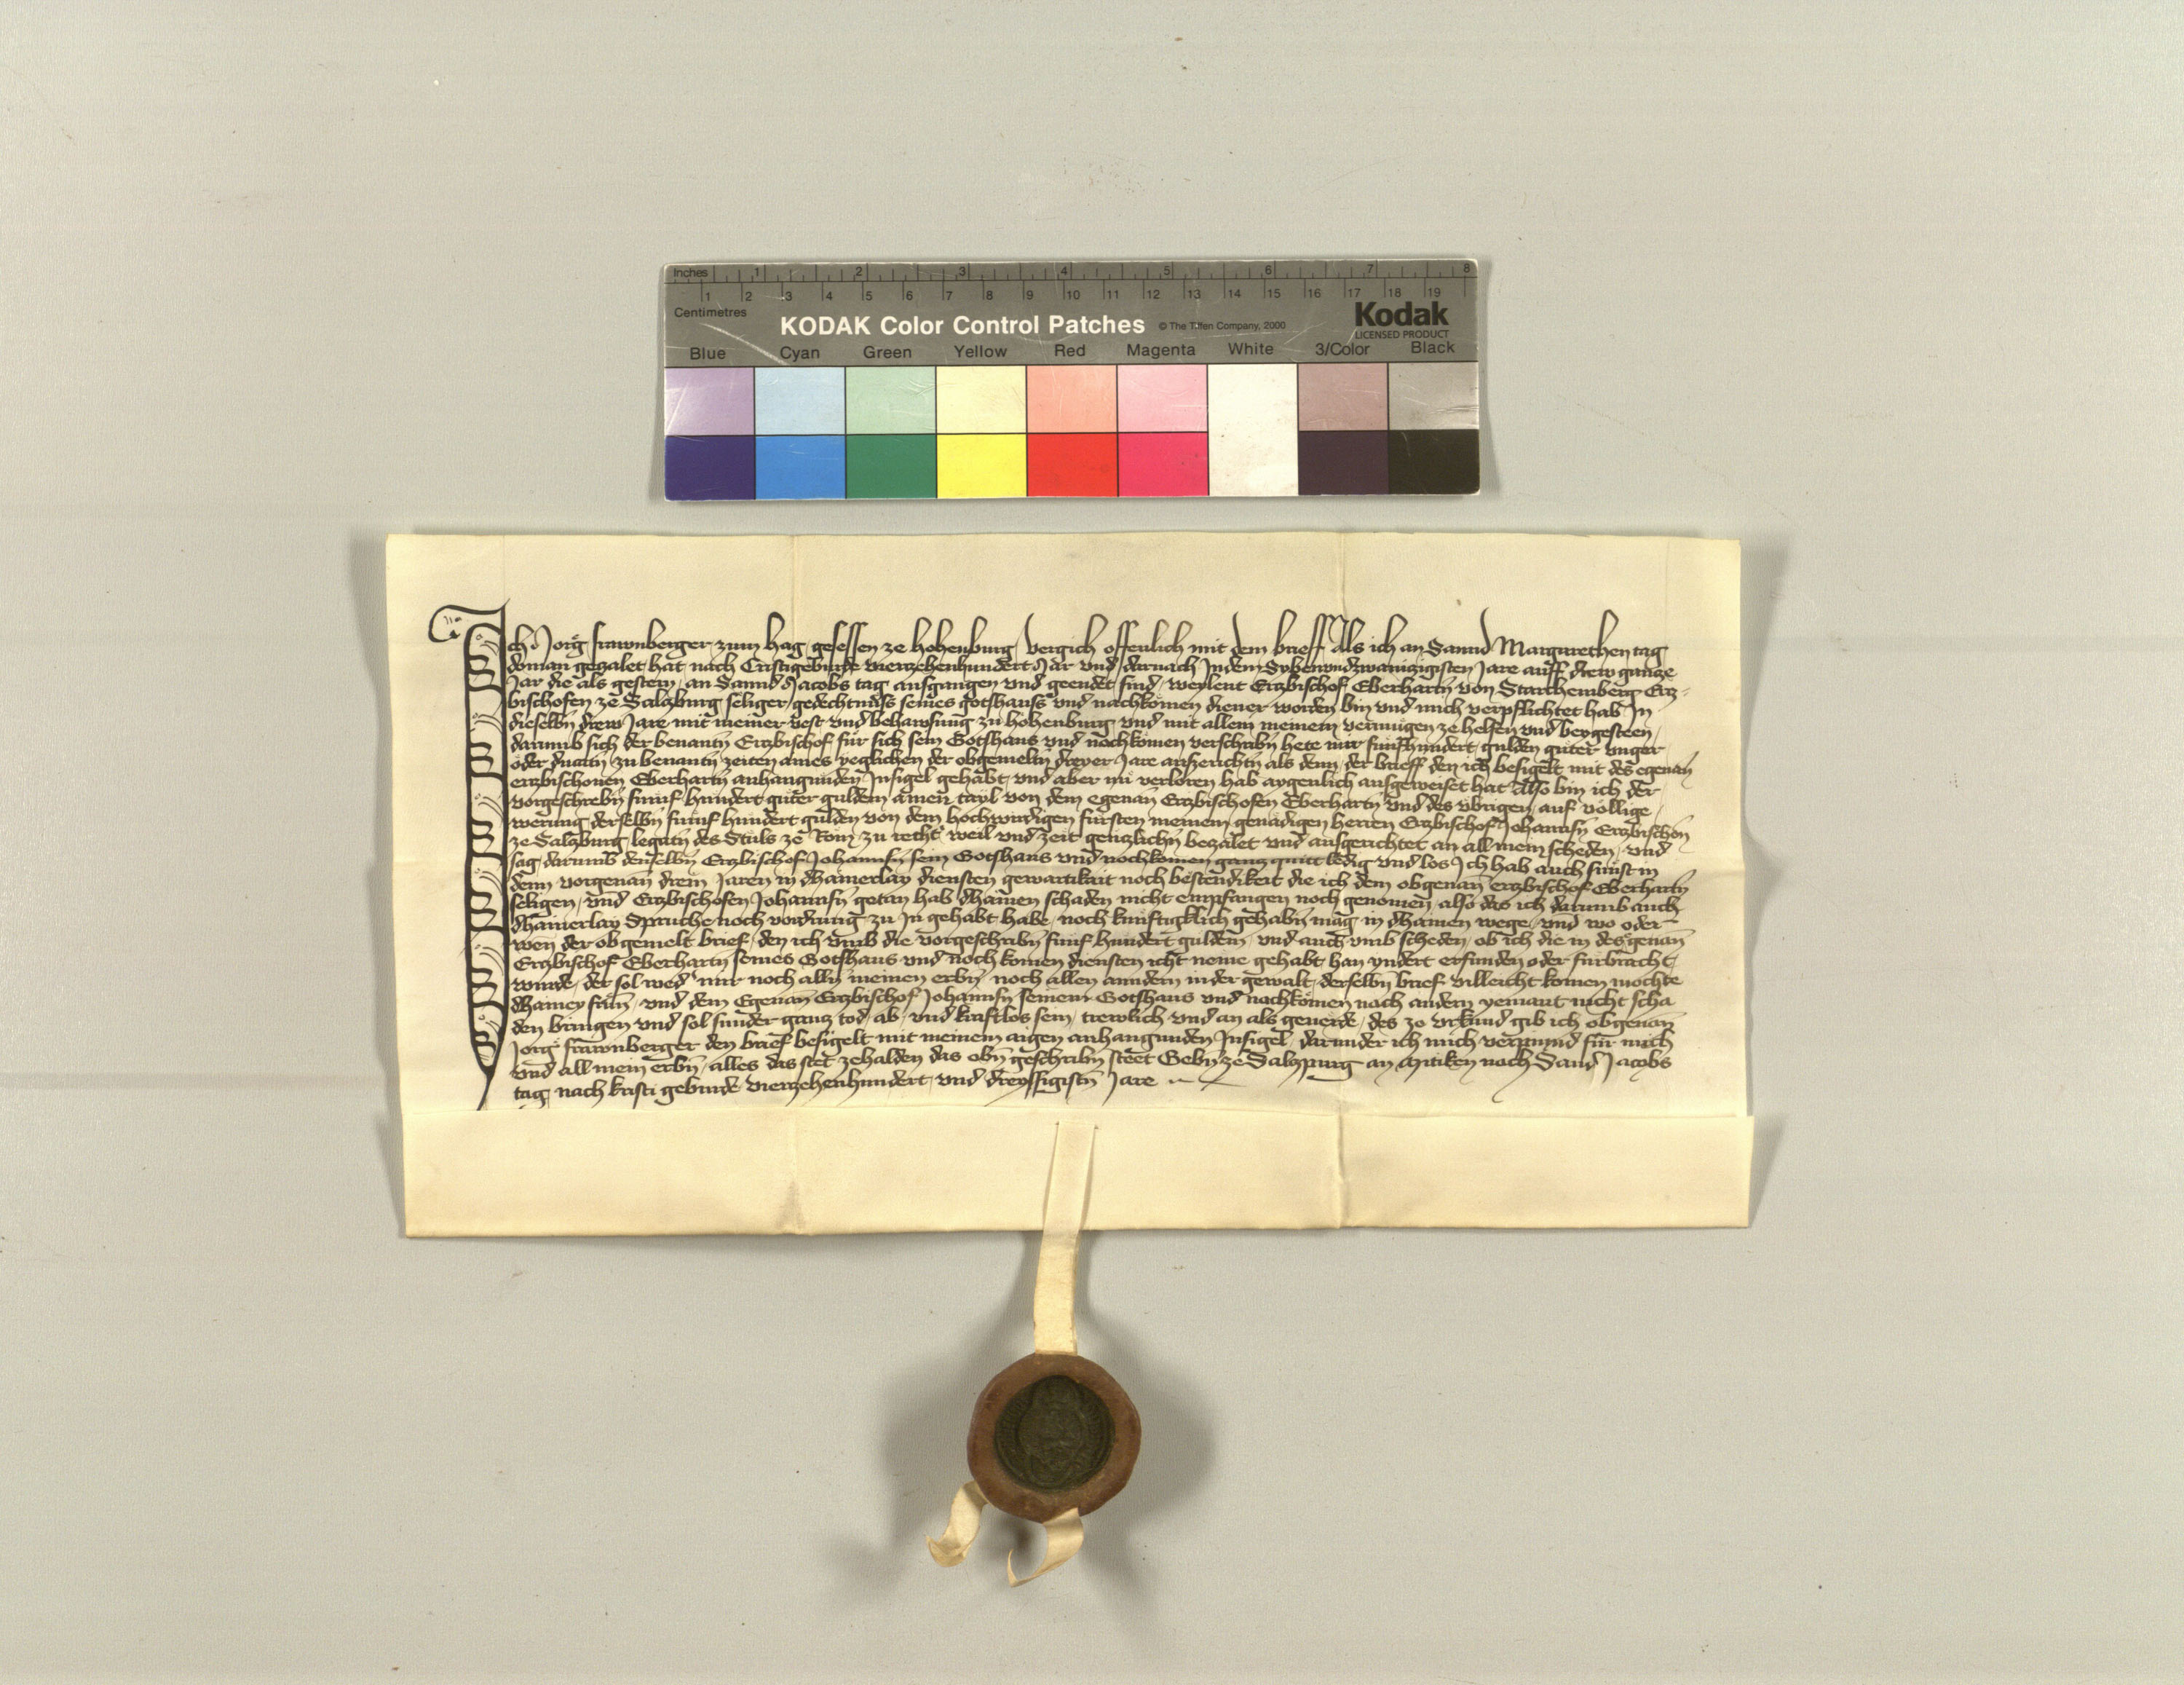 Inches 1 2 3 4 5 6 7 8
1 2 3 4 5 6 7 8 9 10 11 12 13 14 15 16 17 18 19
Centimetres
KODAK Color Control Patches © The Tiffen Company, 2000 Kodak
LICENSED PRODUCT
Blue Cyan Green Yellow Red Magenta White 3/Color Black
Ich Jorg frawnberger zum hag gesessen ze hohenburg vergich offenlich mit dem brieff Als ich an Sannd Margarethen tag
do man gezalet hat nach Cristigeburde vierzehenhundert Jar vnd darnach In dem Sybenvndzwainzigisten Jare auff drew gancze
Jar die als gestern an Sannd Jacobs tag ausgangen vnd geendet sind weylent Erzbischof Eberhartn von Starchemberg Ercz-
bischofen ze Salzburg seliger gedechtnuss seines gotshauss vnd nachkomen diener worden bin vnd mich verpflichtet hab In
dieselbn drew Jare mit meiner vest vnd behawsung zu hohenburg vnd mit allem meinem vermugen ze helfen vnd beygesteen
darumb sich der benantn Erzbischof für sich sein Gotshaus vnd nachkomen verschribn hete mir fünfhundert gulden guter vnger
oder ducatn zu benantn zeiten aines yeglichen der obgemeltn dreyer Jare auszerichtn als denn der brieff den ich besigelt mit des egenan
erzbischouen Eberhartn anhangunden Insigel gehabt vnd aber nu verloren hab aygenlich ausgeweiset hat Also bin ich der
vorgeschrebn fünf hundert guter guldein ainen tayl von dem egenan Erzbischofen Eberhartn vnd des vbrigen auf vollige
werung derselbn fünf hundert gulden von dem hochwirdigen fürsten meinem genadigen herren Erzbischof Johannsn Erzbischon
ze Salzburg legatn des Stuls ze Rom zu recht weil vnd zeit genzlichn bezalet vnd ausgerichtet an all mein scheden vnd
sag darumb denselbn Erzbischof Johannsn sein Gotshaus vnd nochkomen ganz quitt ledig vnd los Ich hab auch sünst in
denn vorgenan drein Jaren in dhainerlay diensten gewartikait noch bestendikeit die ich dem obgenan erzbischof Eberhartn
seligen vnd Erzbischofen Johannsn getan hab dhainen schaden nicht empfangen noch genomen also das ich darumb auch
dhainerlay Spruche noch vordrung zu In gehabt habe noch kunftigklich gehabn mag in dhainen wege vnd wo oder
wen der obgemelt brief den ich vmb die vorgeschribn fünf hundert guldein vnd auch vmb scheden ob ich die in des genan
Erzbischof Eberhartn seines Gotshaus vnd noch komen diensten icht neme gehabt han yndert erfunden oder fürbracht
wurde der sol wed mir noch alln meinen erbn noch allen anndern in der gewalt derselbn brief villeicht komen mochte
dhainen frum vnd dem Egenan Erzbischof Johannsn seinem Gotshaus vnd nachkomen noch andern yemant nicht scha
den bringen vnd sol sunder ganz tod ab vnd kraftlos sein trewlich vnd an als geuerde des zo vrkund gib ich obgenan
Jorg frawnberger den brief besigelt mit meinem aigen anhangunden Insigel darunder ich mich verpinnd für mich
vnd all mein erbn alles das stet ze halden das obn geschribn steet Gebn ze Salzpurg an Mitiken nach Sand Jacobs
tag nach kristi geburde vierzehenhundert vnd dreyssigistn Jare